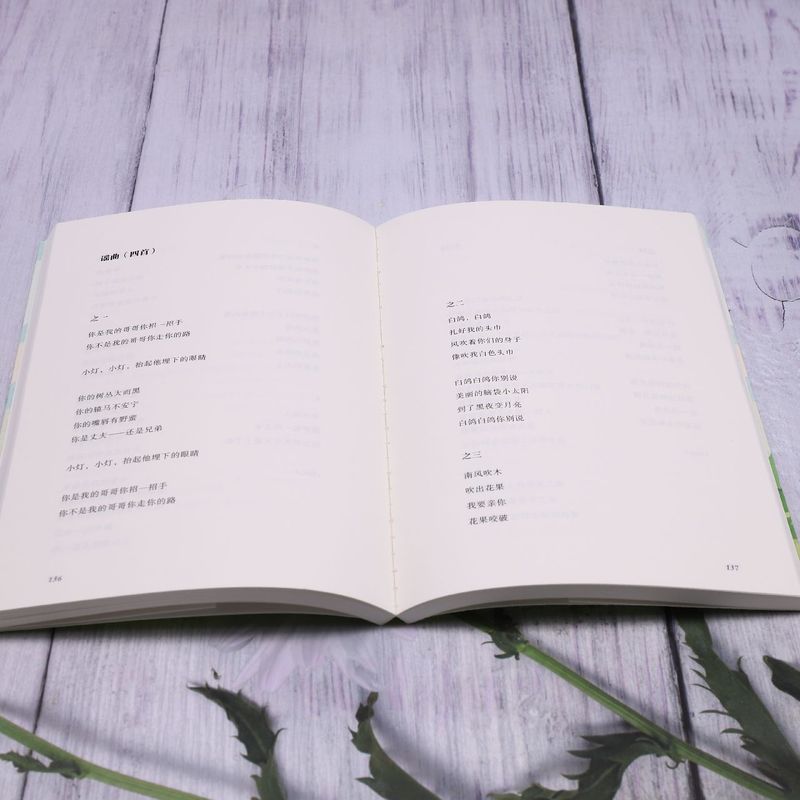 谣曲（四首）
之一
你是我的哥哥你招一招手
你不是我的哥哥你走你的路
小灯，小灯，抬起他埋下的眼睛
你的树丛大而黑
你的辕马不安宁
你的嘴唇有野蜜
你是丈夫——还是兄弟
小灯，小灯，抬起他埋下的眼睛
你是我的哥哥你招一招手
你不是我的哥哥你走你的路
136
之二
白鸽，白鸽
扎好我的头巾
风吹着你们的身子
像吹我白色头巾
白鸽白鸽你别说
美丽的脑袋小太阳
到了黑夜变月亮
白鸽白鸽你别说
之三
南风吹木
吹出花果
我要亲你
花果咬破
137